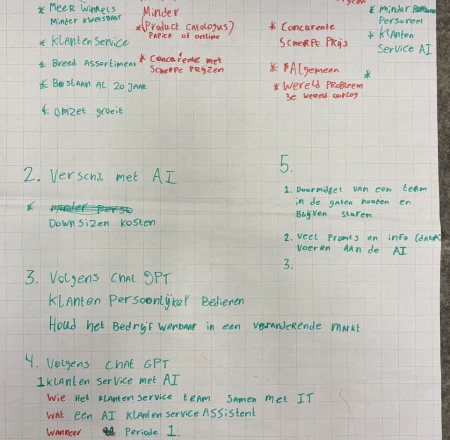 * Meer winkels
Minder kwetsbaar
* Klantenservice
* Breed Assortiment
* Bestaan Al 20 JAAR
* omzet groeit
Minder
* (Product CATALOGUS)
PAPIER of online
* Concurentie met
Scherpe Prijzen
* Concurente
Scherpe Prijs
* Algemeen
* Wereld Probleem
3e wereld oorlog
* Minder
Personeel
* Klanten
Service AI
*
2. Verschil met AI
* Minder Perso
Downsizen kosten
3. Volgens Chat GPT
Klanten Persoonlijker Bedienen
Houd het Bedrijf in een veranderende Markt
4. Volgens Chat GPT
1 klanten service met AI
Wie Het klanten service team samen met IT
Wat een AI klanten service Assistent
Wanneer Periode 1.
5.
1. Doormiddel van een team
in de gaten houden en
Blijven sturen
2. veel Promts en info (data)
voeren aan de AI
3.